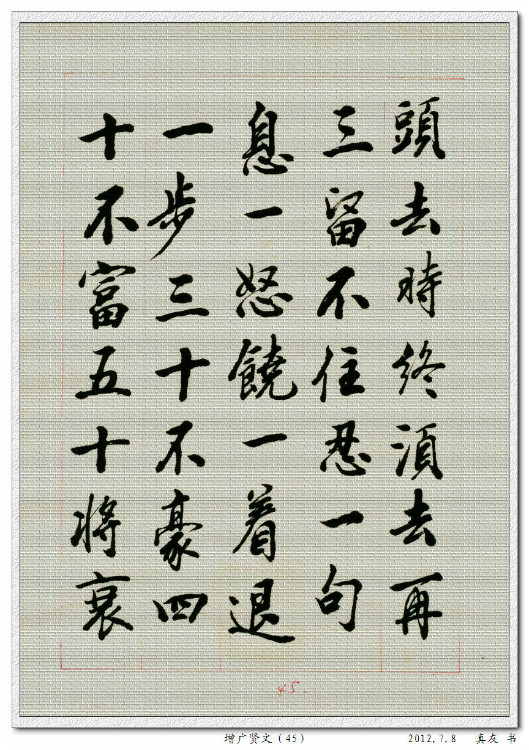 頭去時終須去再
三留不住忍一句
息一怒饒一着退
一步三十不豪四
十不富五十將衰
45.
增广贤文（45）
2012.7.8 真友 书